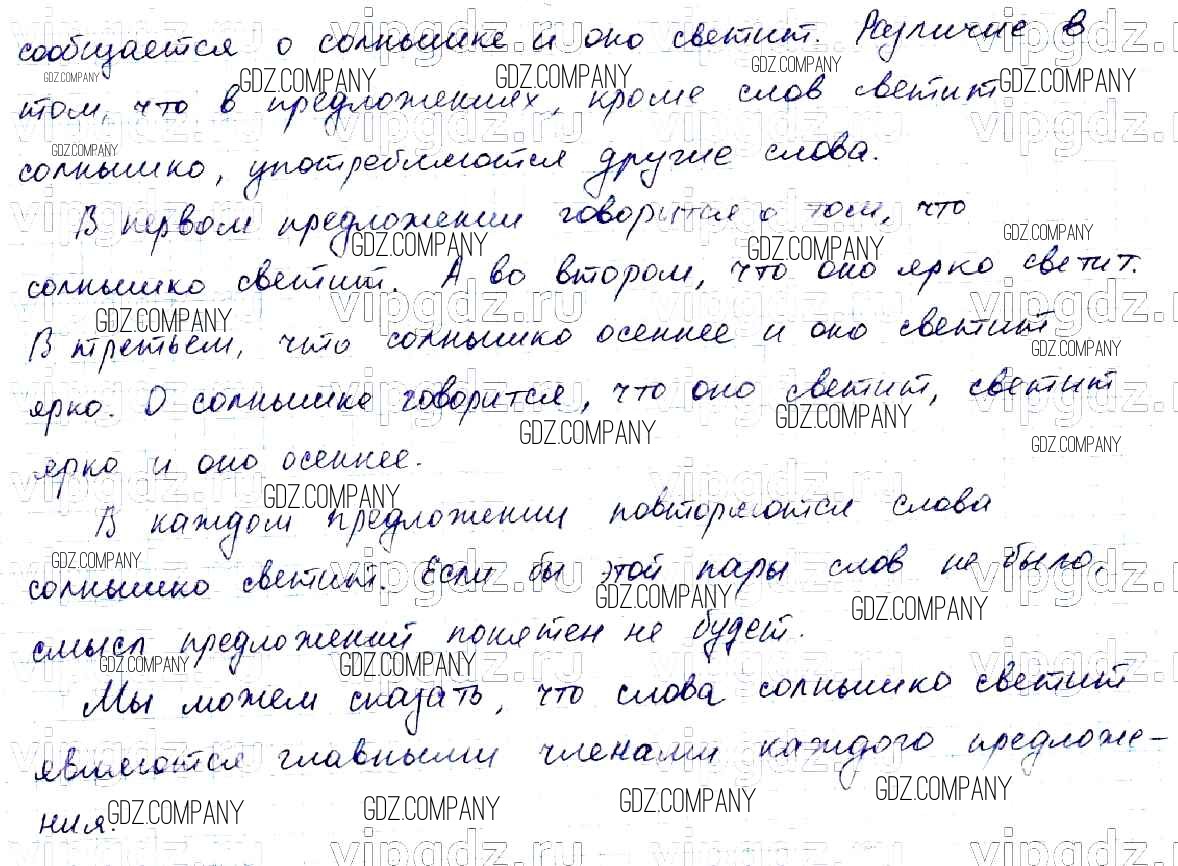 сообщается о солнышке и оно светит. Различие в
том, что в предложениях, кроме слов светит
солнышко, употребляются другие слова.
В первом предложении говорится о том, что
солнышко светит. А во втором, что оно ярко светит.
В третьем, что солнышко осеннее и оно светит
ярко. О солнышке говорится, что оно светит, светит
ярко и оно осеннее.
В каждом предложении повторяются слова
солнышко светит. Если бы этой пары слов не было,
смысл предложений понятен не будет.
Мы можем сказать, что слова солнышко светит
являются главными членами каждого предложе-
ния.
GDZ.COMPANY
vipgdz.ru